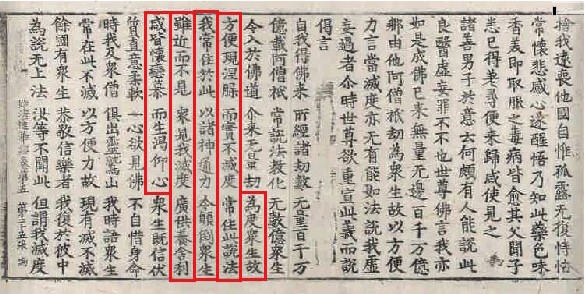 捨我遠喪他國自惟孤露无復恃怙
常懷悲感心遂醒悟乃知此藥色味
香美即取服之毒病皆愈其父聞子
悉已得差尋便來歸咸使見之
諸善男子於意云何頗有人能說此
良醫虛妄罪不不也世尊佛言我亦
如是成佛已來無量無邊百千万億
那由他阿僧祇劫為衆生故以方便
力言當滅度亦無有能如法說我虛
妄過者尒時世尊欲重宣此義而說
偈言
自我得佛來 所經諸劫數 无量百千万
億載阿僧祇 常說法教化 无數億衆生
令入於佛道 尒來无量劫 為度衆生故
方便現涅槃 而實不滅度 常住此說法
我常住於此 以諸神通力 令顛倒衆生
雖近而不見 衆見我滅度 廣供養舍利
咸皆懷戀慕 而生渴仰心 衆生既信伏
質直意柔軟 一心欲見佛 不自惜身命
時我及衆僧 俱出靈鷲山 我時語衆生
常在此不滅 以方便力故 現有滅不滅
餘國有衆生 恭敬信樂者 我復於彼中
為說无上法 汝等不聞此 但謂我滅度